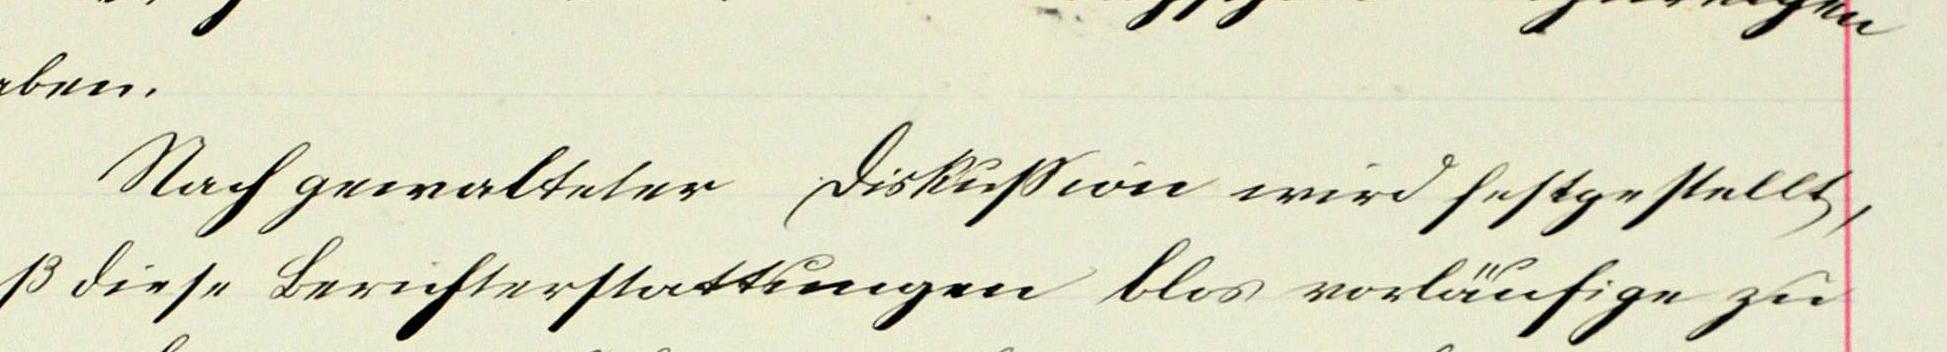 aben.
Nach gewalteter Diskußion wird festgestellt,
ß diese Berichterstattungen blos vorläufige zu